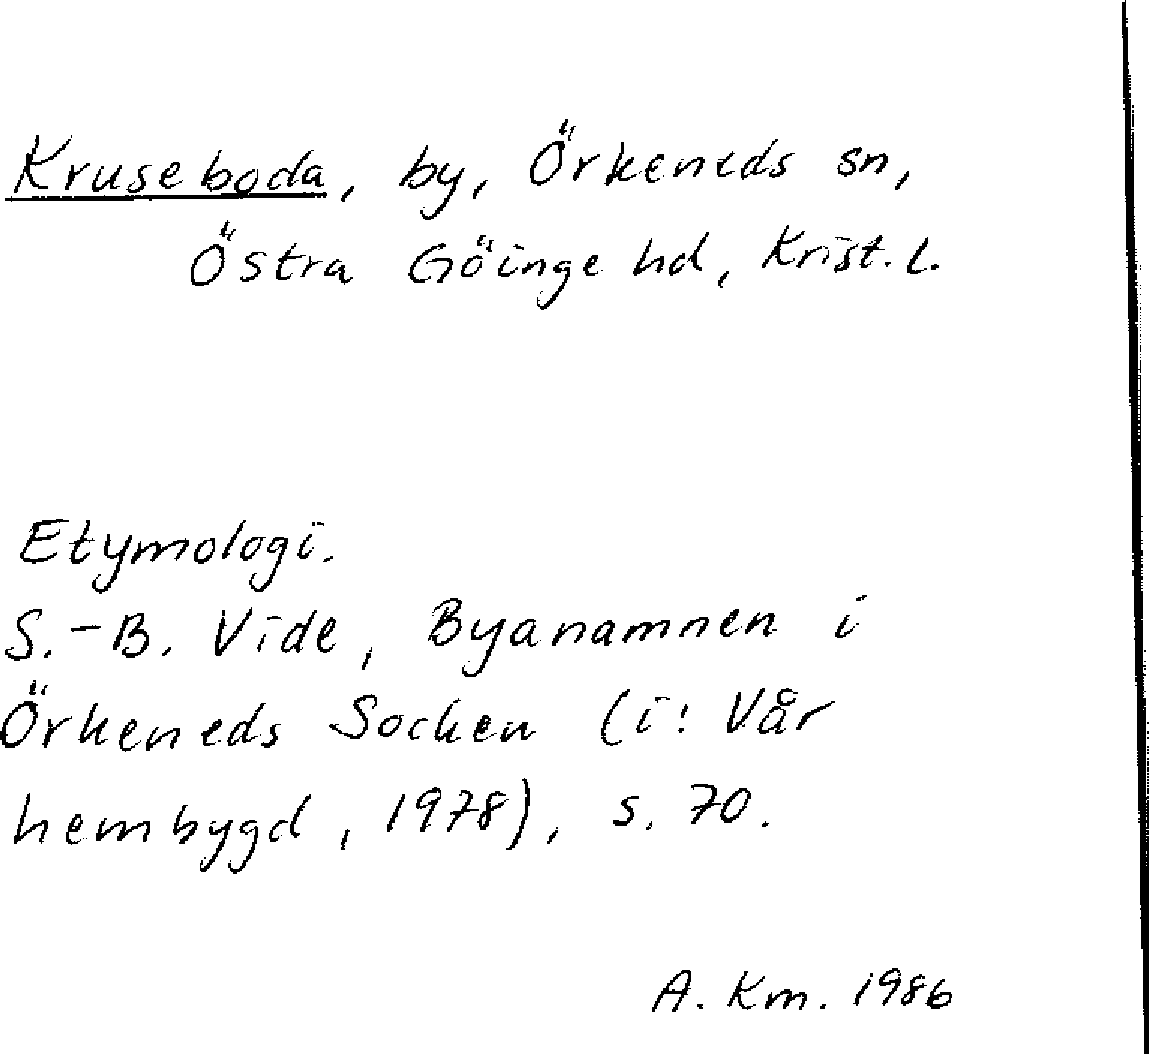 Kruseboda, by, Örkeneds sn,
Östra Göinge hd, Krist. l.
Etymologi.
S.-B. Vide, Byanamnen i
Örkeneds Socken (i: Vår
hembygd, 1978), s. 70.
A. Km. 1986